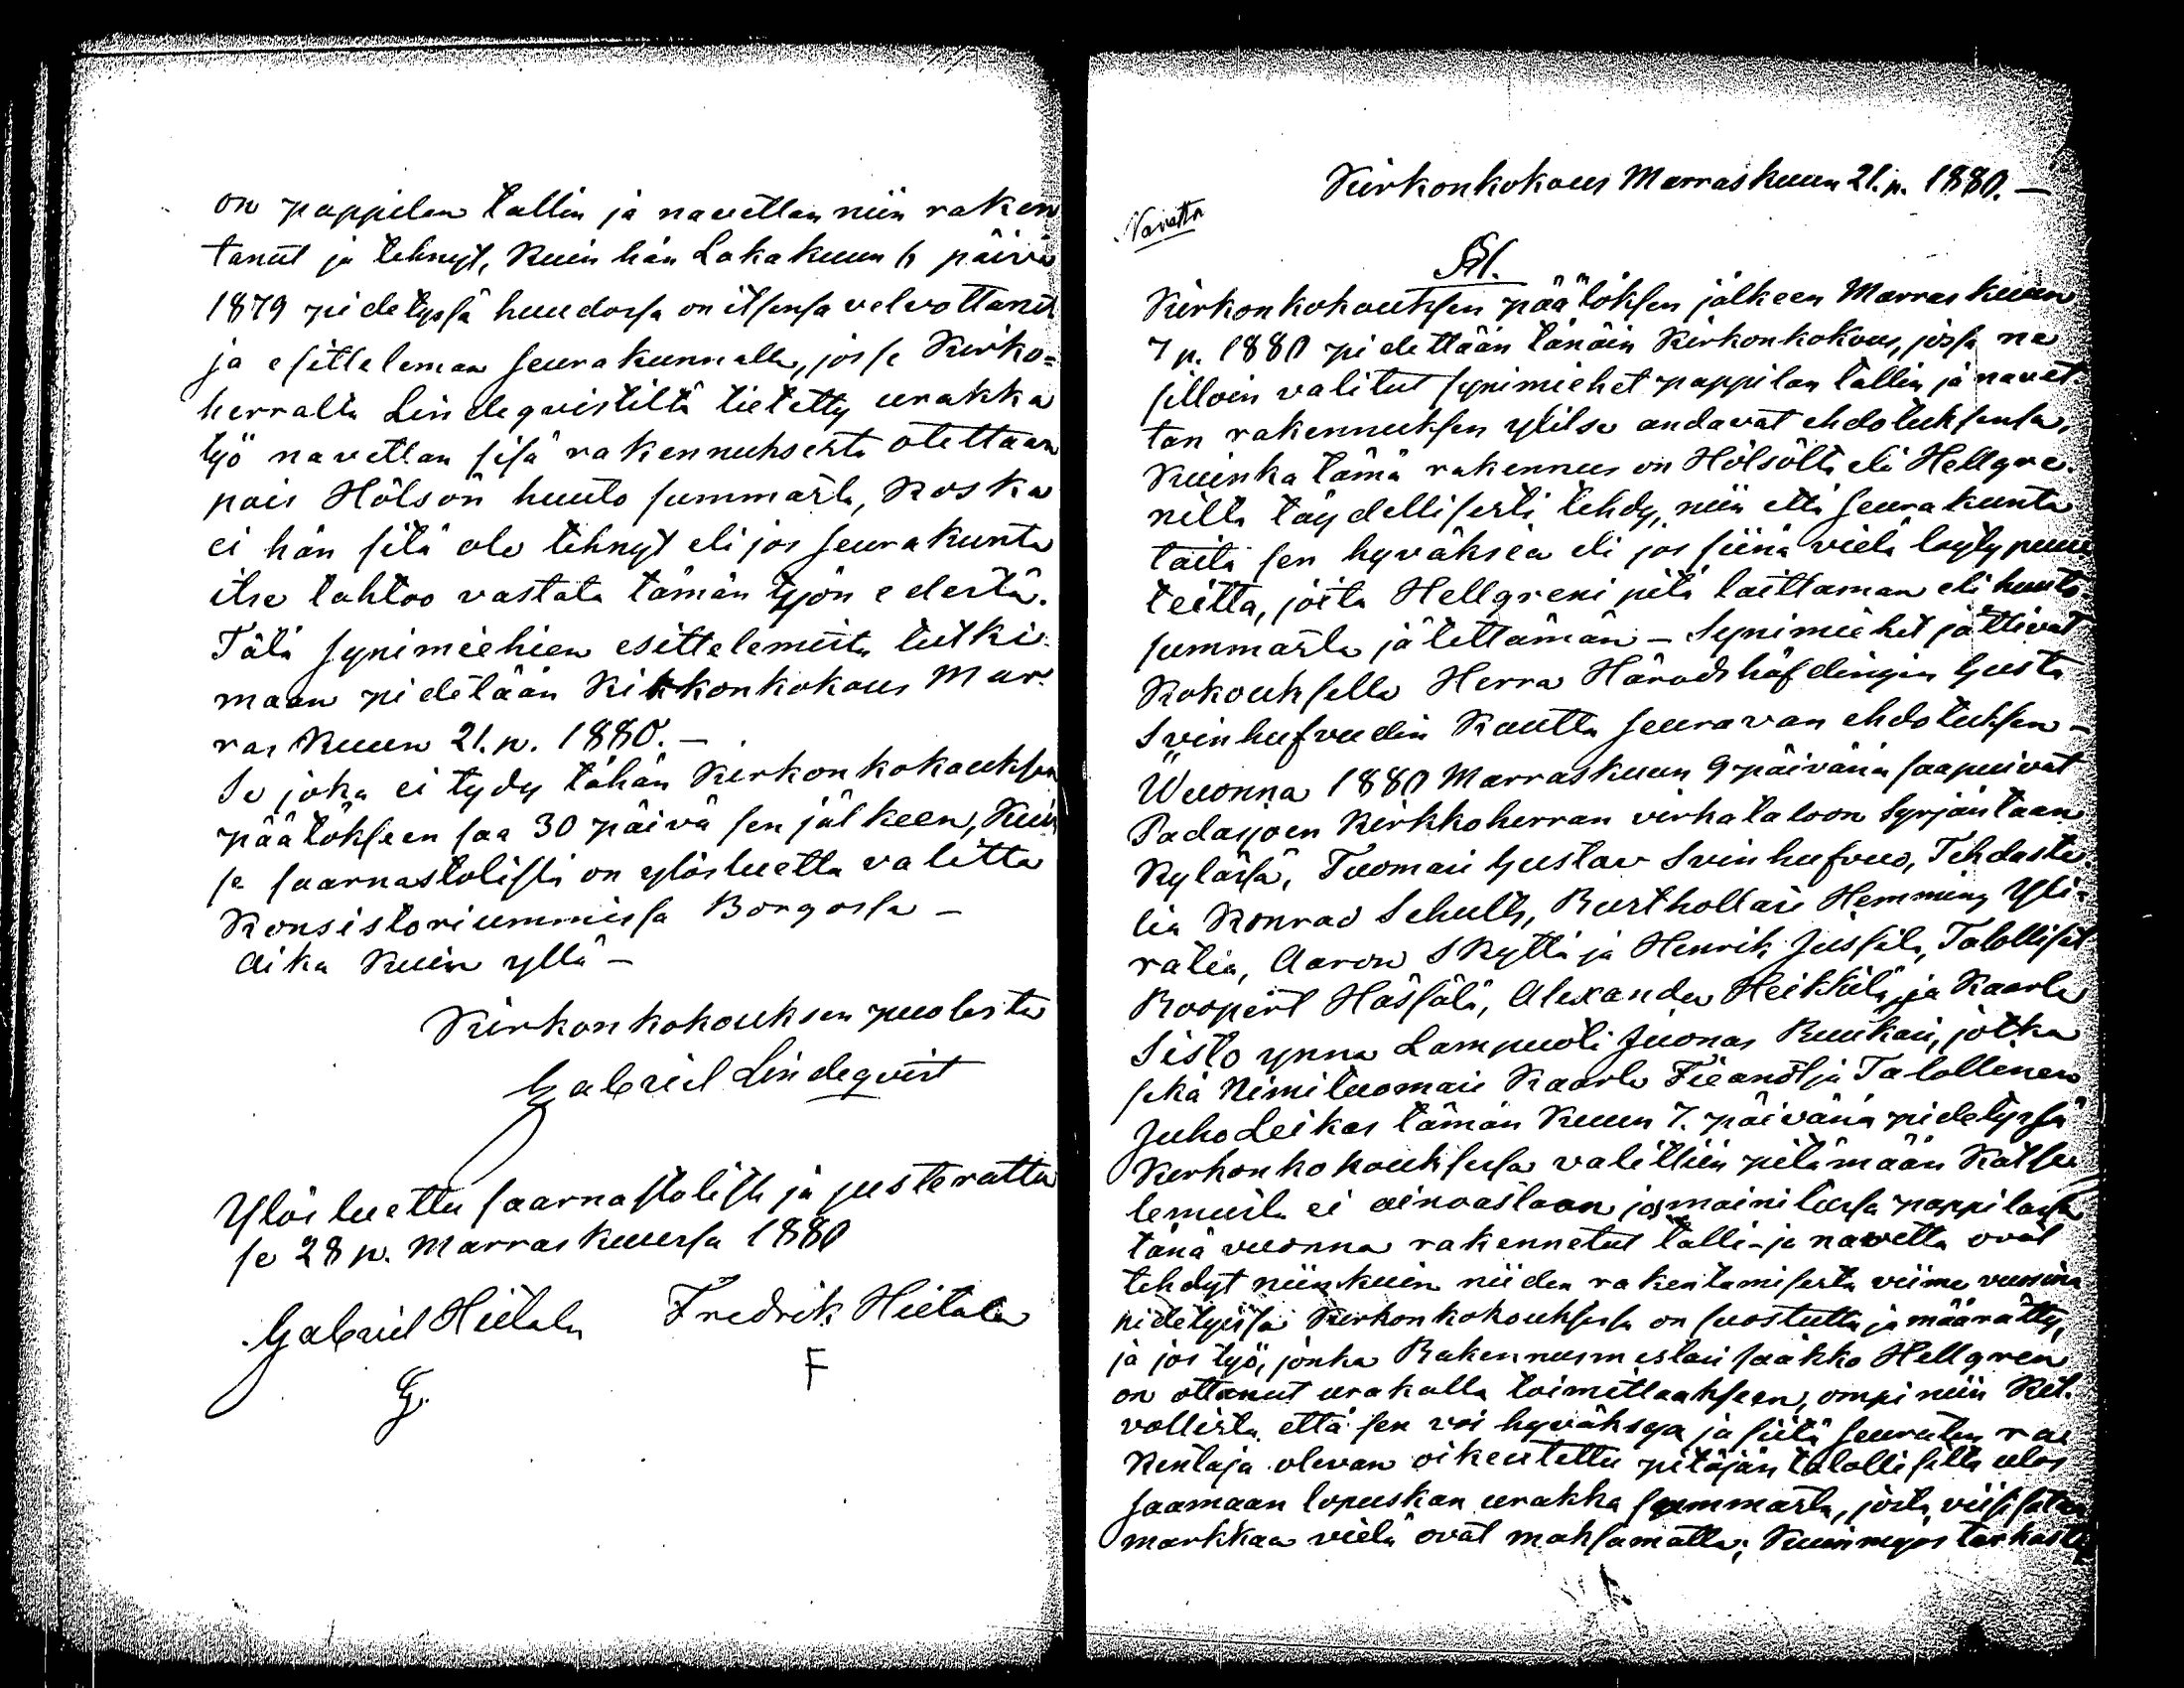 on pappilan tallin ja navettan niin raken
tanut ja tehnyt, kuin hän Lokakuun 6 päivä
1879 pidetyssä huudossa on itsensä velvottanut
ja esittelemän seurakunnalle, jos se Kirko=
herralta Lindeqvistiltä tietetty urakka
työ navettan sisä rakennuksesta otettaan
pois Hölsön huuto summasta, koska
ei hän sitä ole tehnyt eli jos seurakunta
itse tahtoo vastata tämän työn edestä.
Tätä synimiehien esittelemistä tutki
maan pidetään Kirkonkokous Mar
ras kuun 21. p. 1880. —
Se joka ei tydy tähän Kirkonkokouksen
päätökseen saa 30 päivä sen jälkeen, kuin
se saarnastolista on ylösluettu valitta
Konsistoriummissa Borgossa —
Aika kuin yllä —
Kirkonkokouksen puolesta
Gabriel Lindeqvist
Ylös luettu saarnastolista ja justerattu
se 28 p. Marraskuussa 1880
Gabriel Hietala Fredrik Hietala
G. F
Kirkonkokous Marraskuun 21. p. 1880. —
Navetta
§ 1.
Kirkonkokouksen päätöksen jälkeen Marraskuun
7 p. 1880 pidettään tänäin Kirkonkokous, jossa ne
silloin valitut synimiehet pappilan tallin ja navet
tan rakennuksen ylitse andavat ehdotuksensa,
kuinka tämä rakennus on Hölsöltä eli Hellgre
niltä täydellisesti tehdy, niin että seurakunta
taita sen hyväksiä eli jos siinä vielä löyty puu
teitta, joita Hellgreni pitä laittaman eli huuto
summasta jätettämän — Synimiehet jättivät
Kokoukselle Herra Häradshöfdingin Gusta
Svinhufvudin kautta seuravan ehdotuksen —
Wuonna 1880 Marraskuun 9 päivänä saapuivat
Padasjoen Kirkkoherran virkataloon Syrjäntaan
kylässä, Tuomari Gustav Svinhufvud, Tehdaste
lia Konrad Schultz, Rusthollari Hemming Yli=
ratia, Aaron Skyttä ja Henrik Jussila, Talolliset
Roopert Hässälä, Alexander Heikkilä, ja Kaarle
Sisto ynna Lampuoti Juonas Ruukari, jotka
sekä Nimituomari Kaarle Tieandt ja Talollinen
Juho Leikas tämän kuun 7. päivänä pidetyssä
Kirkonkokouksessa valittiin pitämään katse
lemusta ei ainoastaan jos mainitussa pappilassa
tänä vuonna rakennetut talli- ja navetta ovat
tehdyt niinkuin niiden rakentamisesta viime vuonna
pidetyissä Kirkonkokouksessa on suostuttu ja määrätty,
ja jos työ, jonka Rakennusmestari Jaakko Hellgren
on ottanut urakalla toimittaakseen, ompi niin kel.
vollista että sen voi hyväksyä ja siitä seuraten ra
kentaja olevan oikeutettu pitäjän talollisilta ulos
saamaan lopuskan urakka summasta, josta viisi sataa
markkaa vielä ovat maksamatta; kuin myös tarkastel